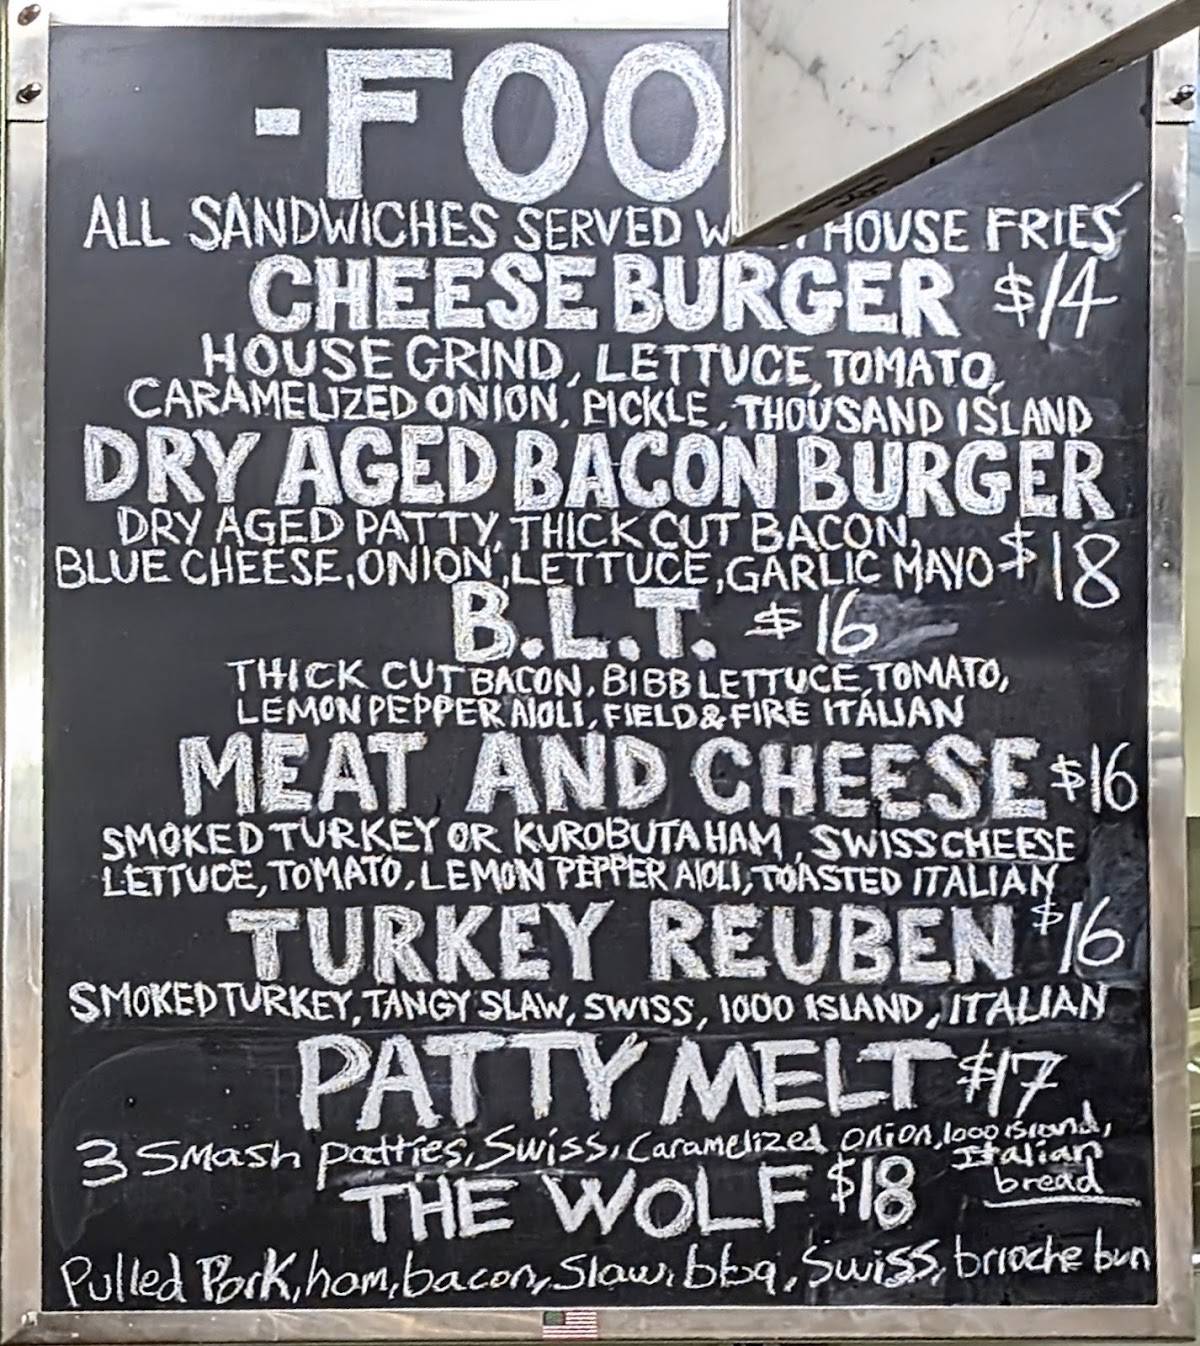 -FOO
ALL SANDWICHES SERVED HOUSE FRIES
CHEESE BURGER $14
HOUSE GRIND, LETTUCE, TOMATO,
CARAMELIZED ONION, PICKLE, THOUSAND ISLAND
DRY AGED BACON BURGER
DRY AGED PATTY, THICK CUT BACON,
BLUE CHEESE, ONION, LETTUCE, GARLIC MAYO $18
B.L.T. $16
THICK CUT BACON, BIBB LETTUCE, TOMATO,
LEMON PEPPER AIOLI, FIELD & FIRE ITALIAN
MEAT AND CHEESE $16
SMOKED TURKEY OR KUROBUTA HAM, SWISS CHEESE
LETTUCE, TOMATO, LEMON PEPPER AIOLI, TOASTED ITALIAN
TURKEY REUBEN $16
SMOKED TURKEY, TANGY SLAW, SWISS, 1000 ISLAND, ITALIAN
PATTY MELT $17
3 Smash patties, Swiss, Caramelized onion, 1000 island,
Italian
bread
THE WOLF $18
Pulled Pork, ham, bacon, Slaw, bbq, Swiss, brioche bun